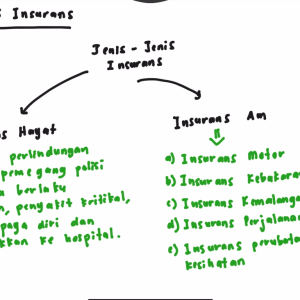 Insurans
Jenis - Jenis
Insurans
Hayat
perlindungan
pemegang polisi
berlaku
penyakit kritikal,
diri dan
ke hospital.
Insurans Am
a) Insurans Motor
b) Insurans Kebakaran
c) Insurans Kemalangan
d) Insurans Perjalanan
e) Insurans perubatan
kesihatan